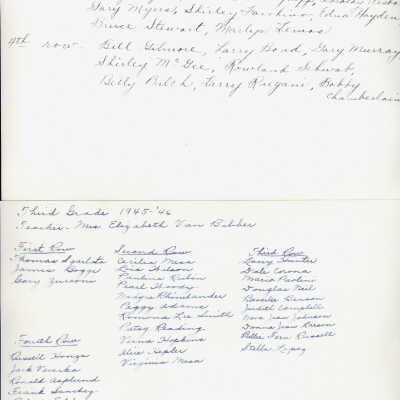 Gary Myers, Shirley Fanchino, Edna Hayden
Bruce Stewart, Marilyn Lemos
4th row - Bill Gilmore, Larry Bond, Gary Murray,
Shirley McGee, Rowland Schwab,
Betty Belch, Larry Rugani, Bobby
Chamberlain
Third Grade 1945-'46
Teacher - Mrs Elizabeth Van Bibber
First Row
Thomas
James Boggs
Gary
Second Row
Cecilia Mesa
Lois Wilson
Pauline Rubin
Pearl Moody
Marge Rhinehander
Peggy Adams
Ramona Lee Smith
Patsy Reading
Verna Hopkins
Alice Hepler
Virginia Mesa
Third Row
Larry Hunter
Dale Corona
Maria Paolini
Douglas Neil
Bonnie Benson
Judith Campbell
Nora Jean Johnson
Donna Jean Larson
Billie Fern Russell
Stella Lopez
Fourth Row
Russell Honza
Jack Veverka
Ronald Asplund
Frank Sanchez